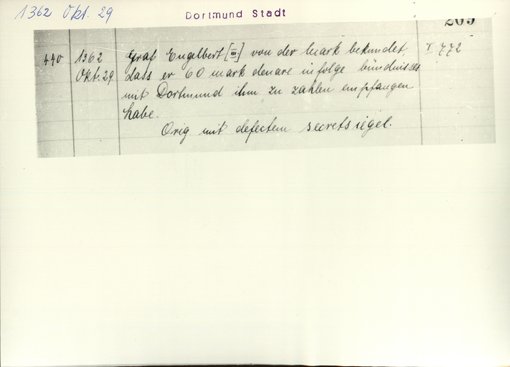 1362 Okt. 29
Dortmund Stadt
209
440 1362 Graf Engelbert [III] von der Mark bekundet I 772
Okt. 29. dass er 60 mark denare infolge bündnisses
mit Dortmund ihm zu zahlen empfangen
habe.
Orig mit defectem secretsiegel.